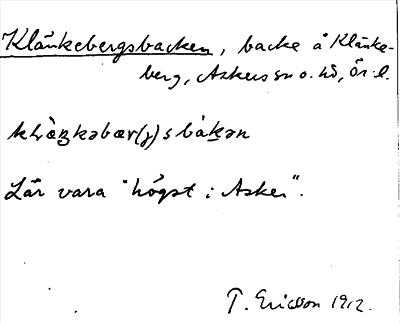 Klänkebergsbacken, backe å Klänke-
berg, Askers sn o. hd, Ör. l.
bàkən
Lär vara "högst i Asker".
T. Ericsson 1912.